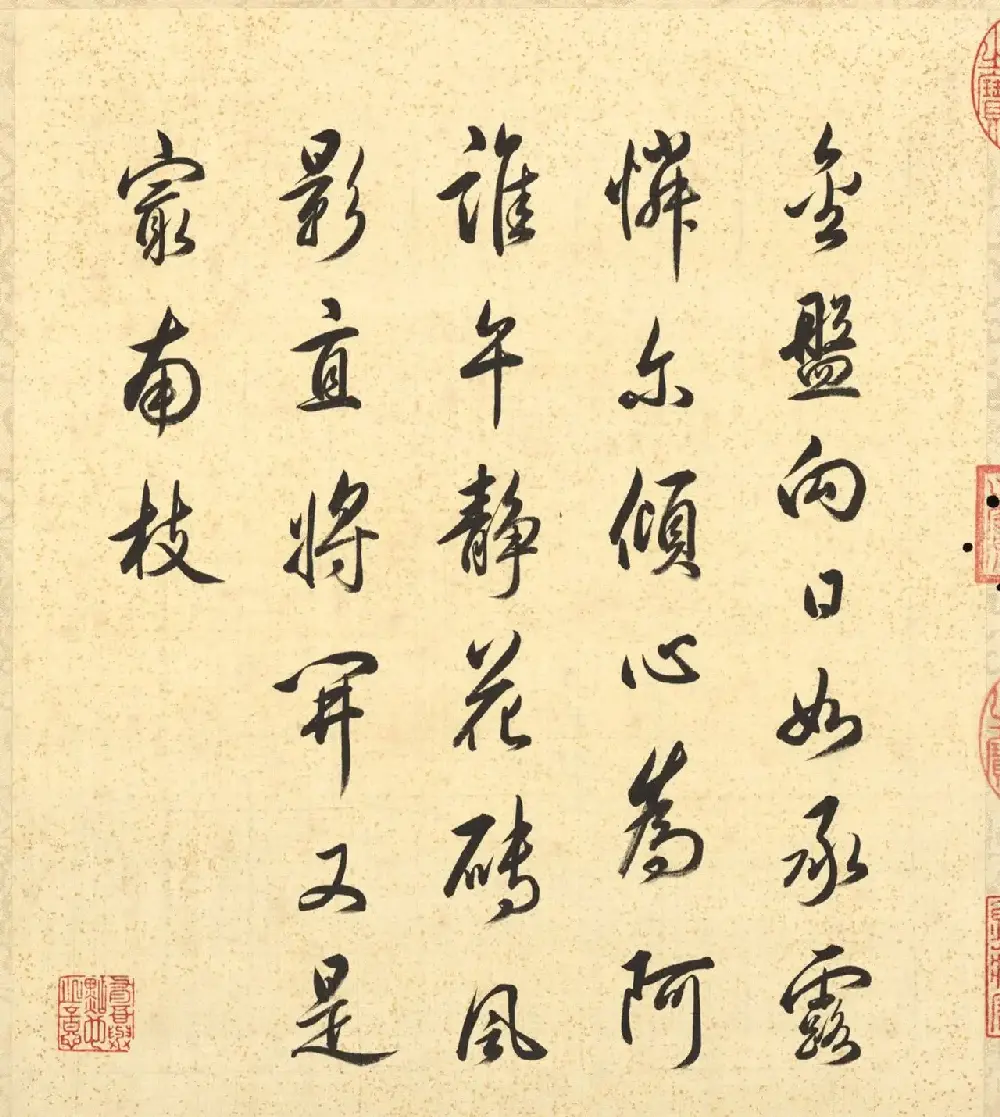 金盤向日如承露
憐尔傾心為阿
誰午静花磚風
影直将開又是
㝡南枝